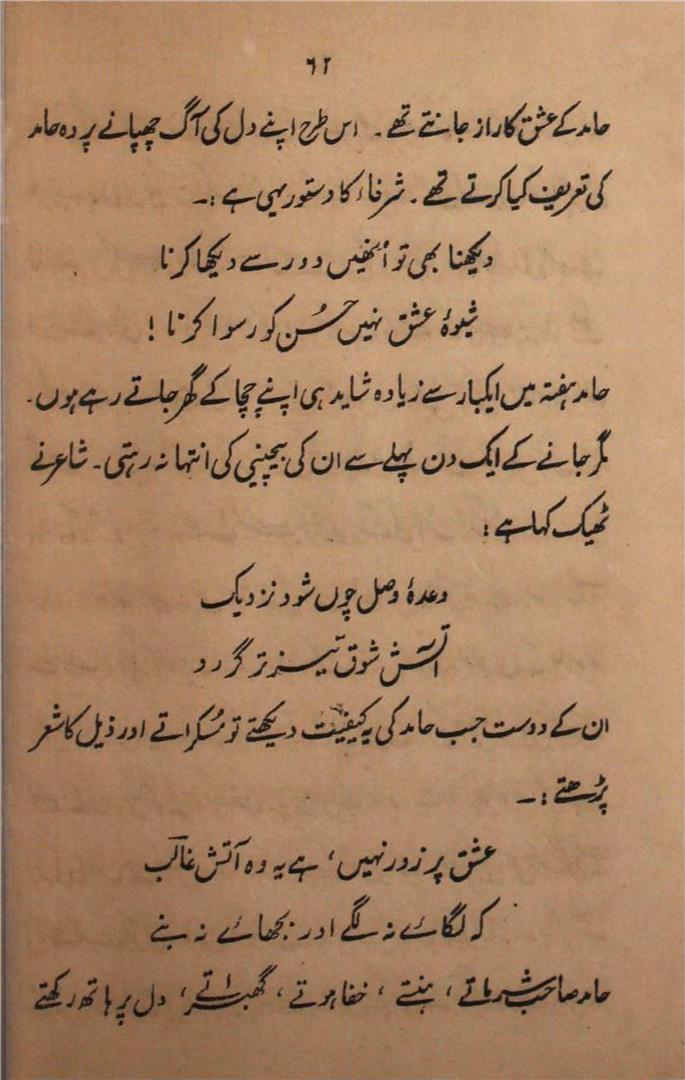 ۶۲
حامد کے عشق کا راز جانتے تھے ۔ اس طرح اپنے دل کی آگ چھپانے پر وہ حامد
کی تعریف کیا کرتے تھے ۔ شرفاء کا دستور یہی ہے :۔
دیکھنا بھی تو اُنھیں دور سے دیکھا کرنا
شیوۂ عشق نہیں حُسن کو رسوا کرنا !
حامد ہفتہ میں ایکبار سے زیادہ شاید ہی اپنے چچا کے گھر جاتے رہے ہوں ۔
مگر جانے کے ایک دن پہلے سے ان کی بیچینی کی انتہا نہ رہتی ۔ شاعر نے
ٹھیک کہا ہے :
وعدۂ وصل چوں شود نزدیک
آتش شوق تیز تر گردد
ان کے دوست جب حامد کی یہ کیفیت دیکھتے تو مُسکراتے اور ذیل کا شعر
پڑھتے :۔
عشق پر زور نہیں ، ہے یہ وہ آتش غالب
کہ لگائے نہ لگے اور بجھائے نہ بنے
حامد صاحب شرماتے ، ہنستے ، خفا ہوتے ، گھبراتے ، دل پر ہاتھ رکھتے